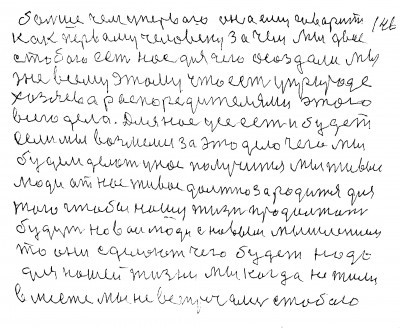 больше чем у первого она ему говорит 146
как первому человеку зачем мы двое
с тобою есть нас для чего создали мы
уже всему этому что есть у природе
хозяева распорядителями этого
всего дела. Для нас усе есть и будет
если мы возмемси за это дело чего мы
будем делать у нас получится мы живые
люди от нас живое должно зародится для
того чтобы нашу жизь продолжать
будут новаи люди с новым мышлением
то они сделают чего будет надо
для нашей жизни мы когда не жили
в месте мы не встричались с тобою